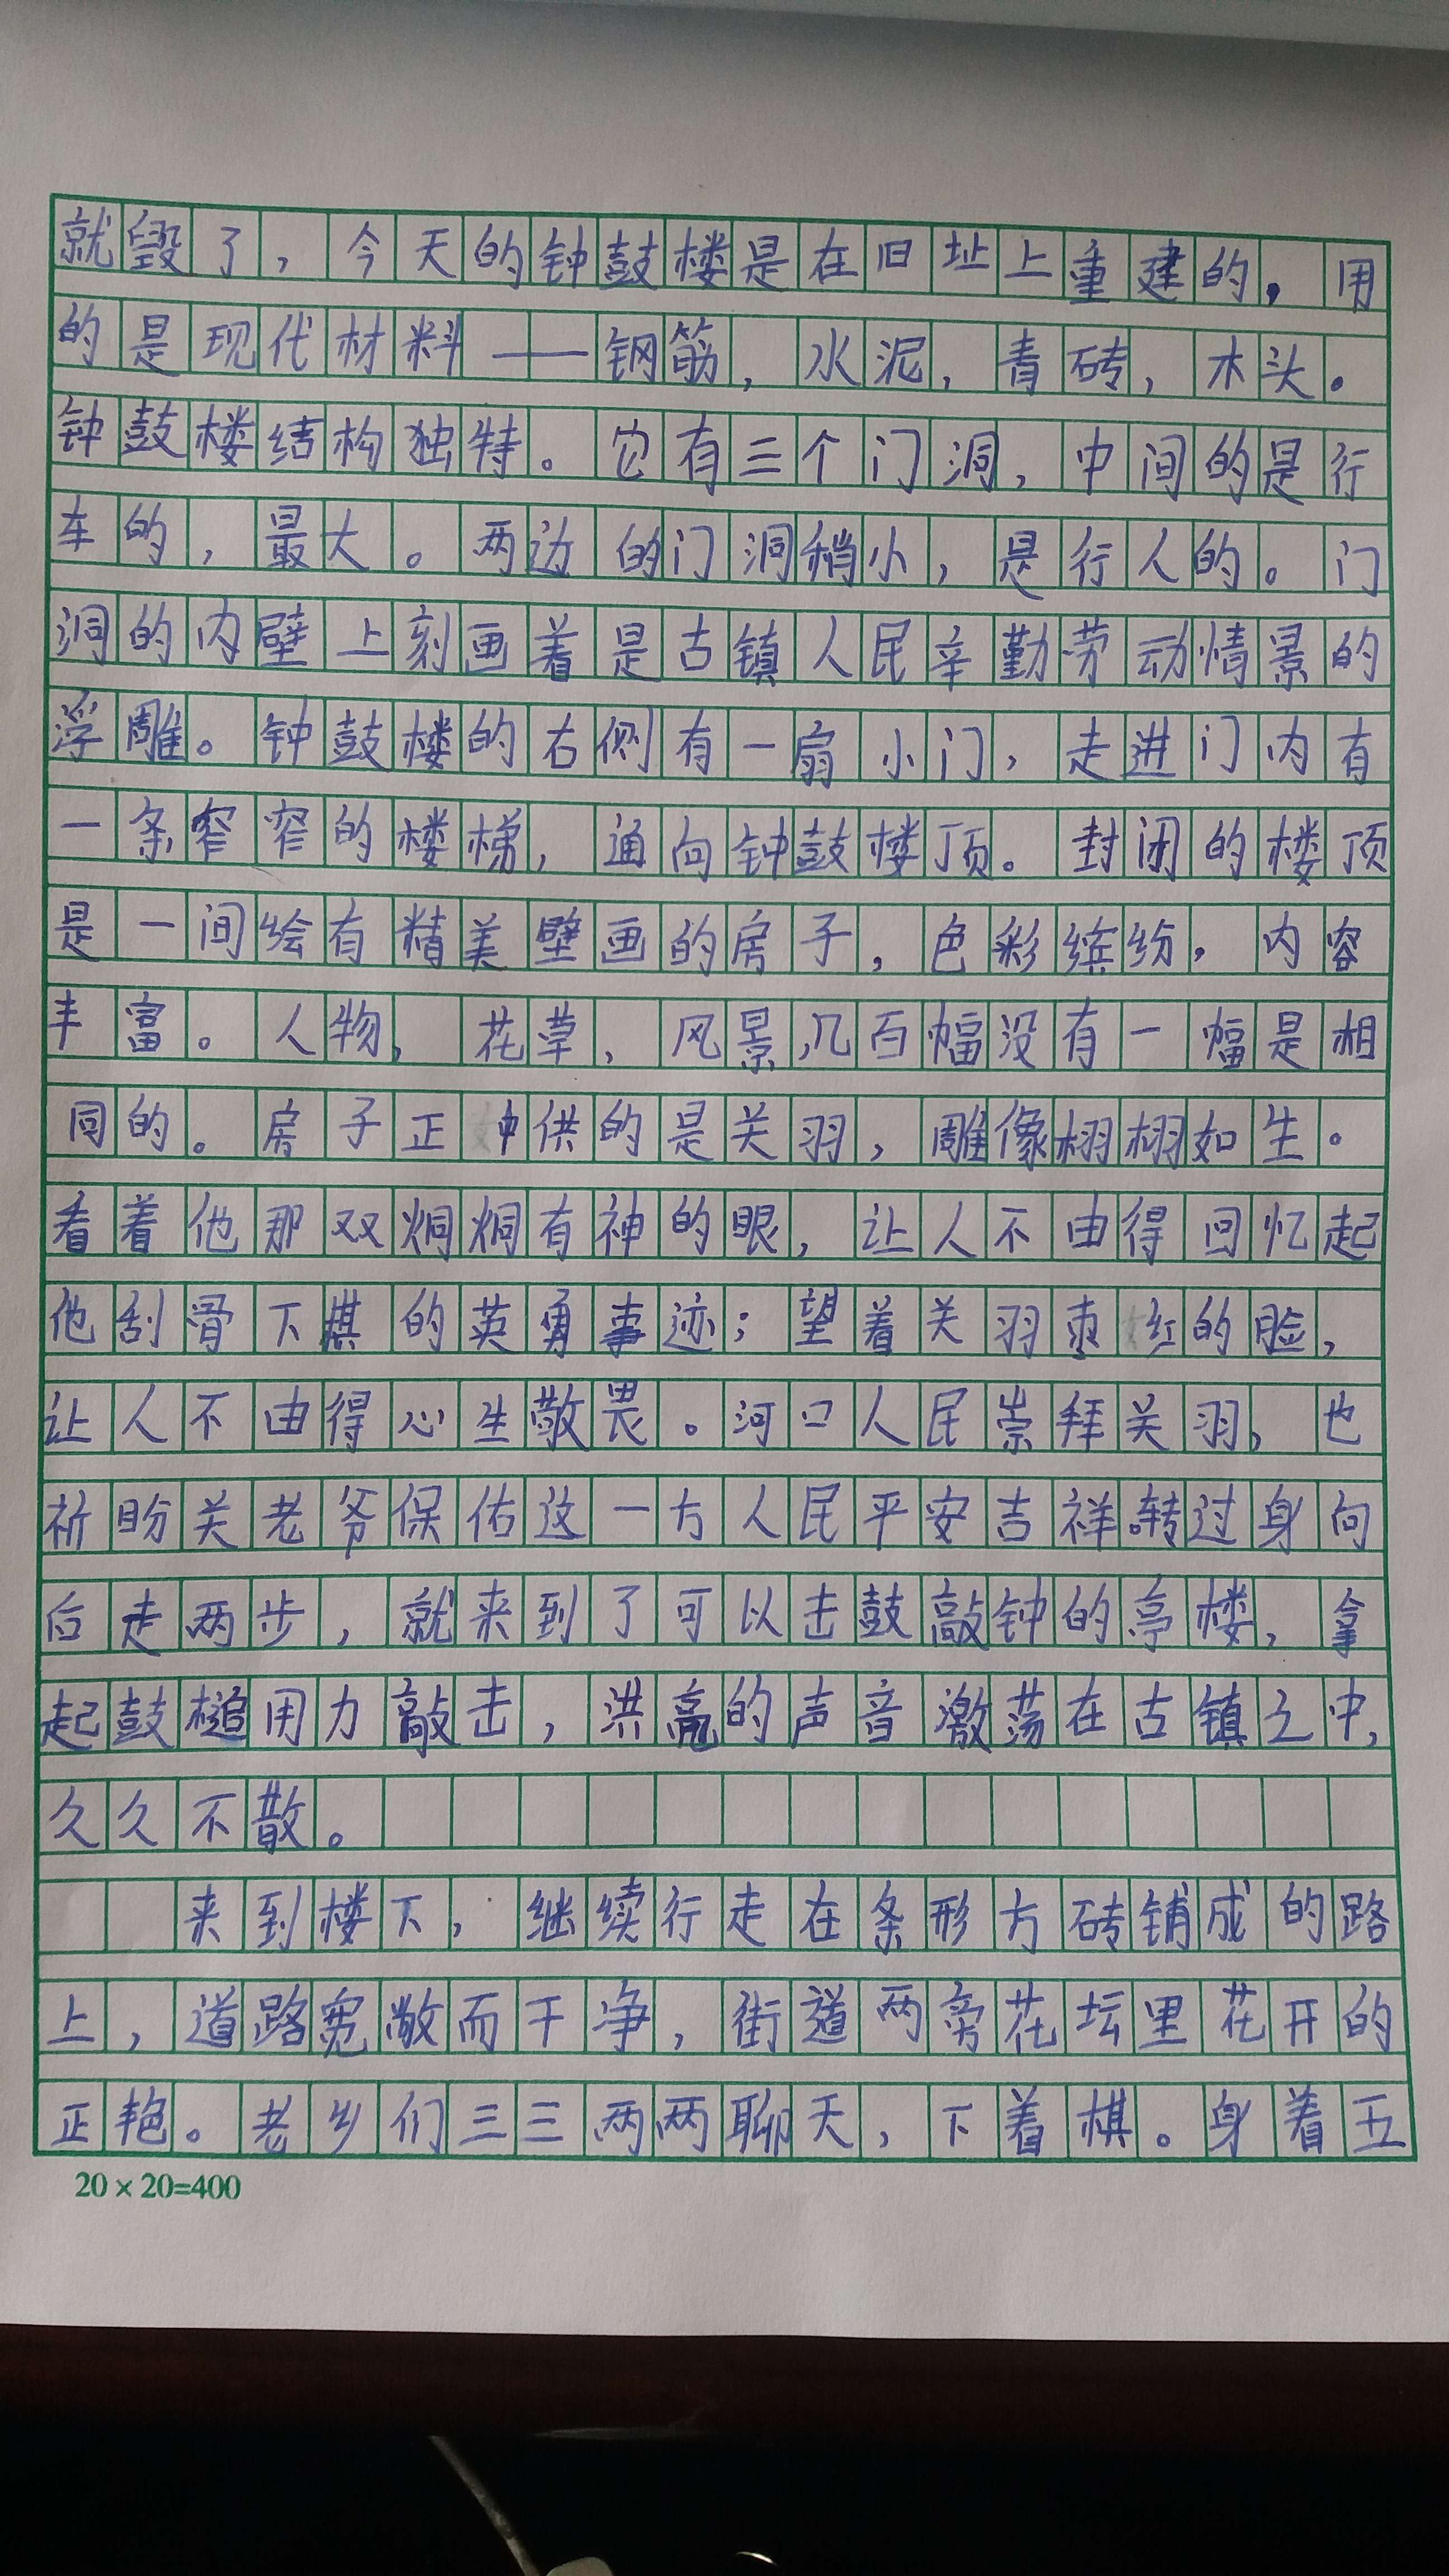 就毁了，今天的钟鼓楼是在旧址上重建的，用
的是现代材料——钢筋，水泥，青砖，木头。
钟鼓楼结构独特。它有三个门洞，中间的是行
车的，最大。两边的门洞稍小，是行人的。门
洞的内壁上刻画着是古镇人民辛勤劳动情景的
浮雕。钟鼓楼的右侧有一扇小门，走进门内有
一条窄窄的楼梯，通向钟鼓楼顶。封闭的楼顶
是一间绘有精美壁画的房子，色彩缤纷，内容
丰富。人物，花草，风景，几百幅没有一幅是相
同的。房子正中供的是关羽，雕像栩栩如生。
看着他那双炯炯有神的眼，让人不由得回忆起
他刮骨下棋的英勇事迹；望着关羽枣红的脸，
让人不由得心生敬畏。河口人民崇拜关羽，也
祈盼关老爷保佑这一方人民平安吉祥。转过身向
后走两步，就来到了可以击鼓敲钟的亭楼，拿
起鼓槌用力敲击，洪亮的声音激荡在古镇之中，
久久不散。
来到楼下，继续行走在条形方砖铺成的路
上，道路宽敞而干净，街道两旁花坛里花开的
正艳。老乡们三三两两聊天，下着棋。身着五
20×20=400